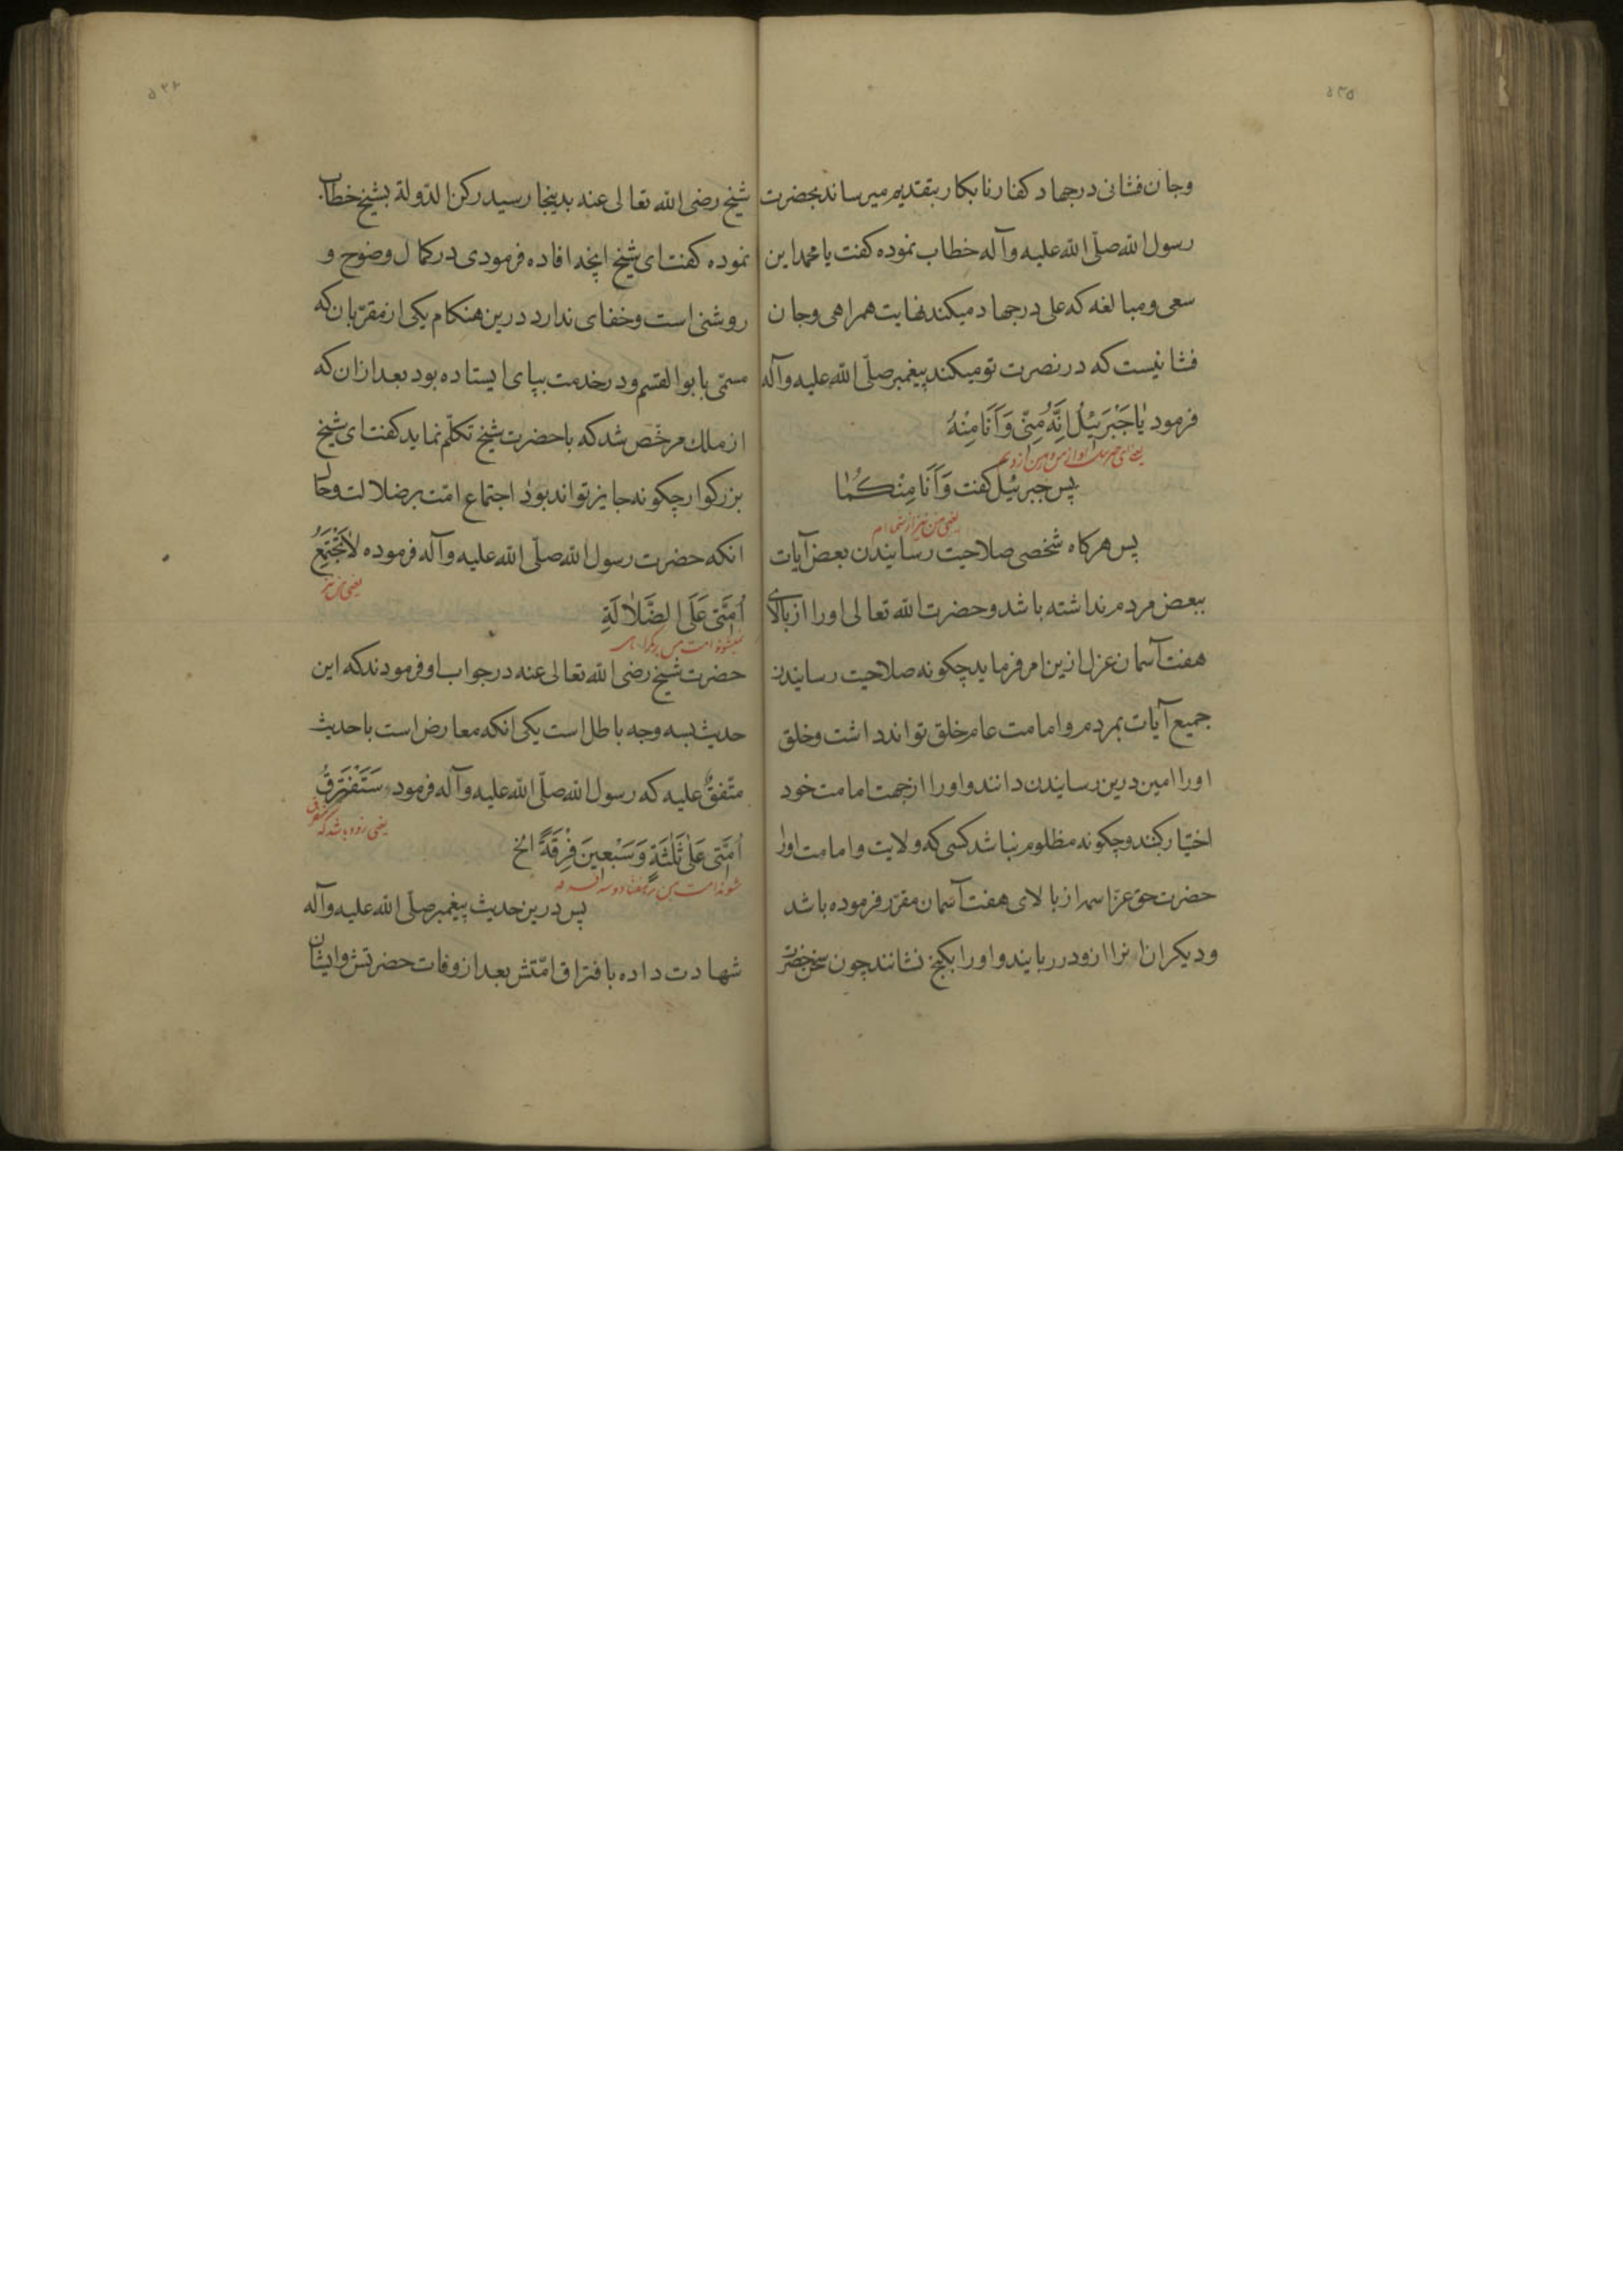 ۵۳۵
وجان فشانی درجهاد کفار نابکار بتقدیم میرساند بحضرت
رسول الله صلّی الله علیه وآله خطاب نموده کفت یا محمد این
سعی ومبالغه که علی درجهاد میکند نهایت همراهی وجان
فشانیست که در نصرت تو میکند پیغمبر صلّی الله علیه وآله
فرمود یٰا جَبْرَئیْلُ اِنَّهُ مِنّی وَاَنَا مِنْهُ
یعنی ای جبرئیل او از من و من از ویم
پس جبرئیل کفت وَاَنَا مِنْکُمٰا
یعنی من نیز از شما ام
پس هرکاه شخصی صلاحیت رسانیدن بعض آیات
ببعض مردم نداشته باشد وحضرت الله تعالی اورا از بالای
هفت آسمان عزل ازین امر فرماید چکونه صلاحیت رسانیدن
جمیع آیات بمردم وامامت عام خلق تواند داشت وخلق
اورا امین درین رسانیدن دانند واورا ازجهت امامت خود
اختیار کنند وچکونه مظلوم نباشد کسی که ولایت وامامت اورا
حضرت حق عزاسمه از بالای هفت آسمان مقرّر فرموده باشد
ودیکران انرا ازو در ربایند واورا بکنج نشانند چون سخن حضرت
شیخ رضی الله تعالی عنه بدینجا رسید رکن الدّولة بشیخ خطاب
نموده کفت ای شیخ انچه افاده فرمودی در کمال وضوح و
روشنی است وخفای ندارد درین هنکام یکی از مقرّبان که
مسمّی بابو القسم ودر خدمت بپای ایستاده بود بعد ازان که
از ملك مرخّص شد که باحضرت شیخ تکلّم نماید کفت ای شیخ
بزرکوار چکونه جایز تواند بود اجتماع امّت بر ضلالت وحال
انکه حضرت رسول الله صلّی الله علیه وآله فرموده لاٰتَجْتَمِعُ
یعنی جمع
اُمَّتی عَلَی الضَّلاٰلَةِ
نمیشوند امت من بر کمراهی
حضرت شیخ رضی الله تعالی عنه در جواب او فرمودند که این
حدیث بسه وجه باطل است یکی انکه معارض است باحدیث
متّفقٌ علیه که رسول الله صلّی الله علیه وآله فرمود سَتَفْتَرِقُ
یعنی زود باشد که متفرق
اُمَّتی عَلیٰ ثَلٰثَةٍ وَسَبْعینَ فِرْقَةً الخ
شوند امت من بر هفتاد وسه فرقه
پس درین حدیث پیغمبر صلّی الله علیه وآله
شهادت داده بافتراق امّتش بعد از وفات حضرتش وایشان